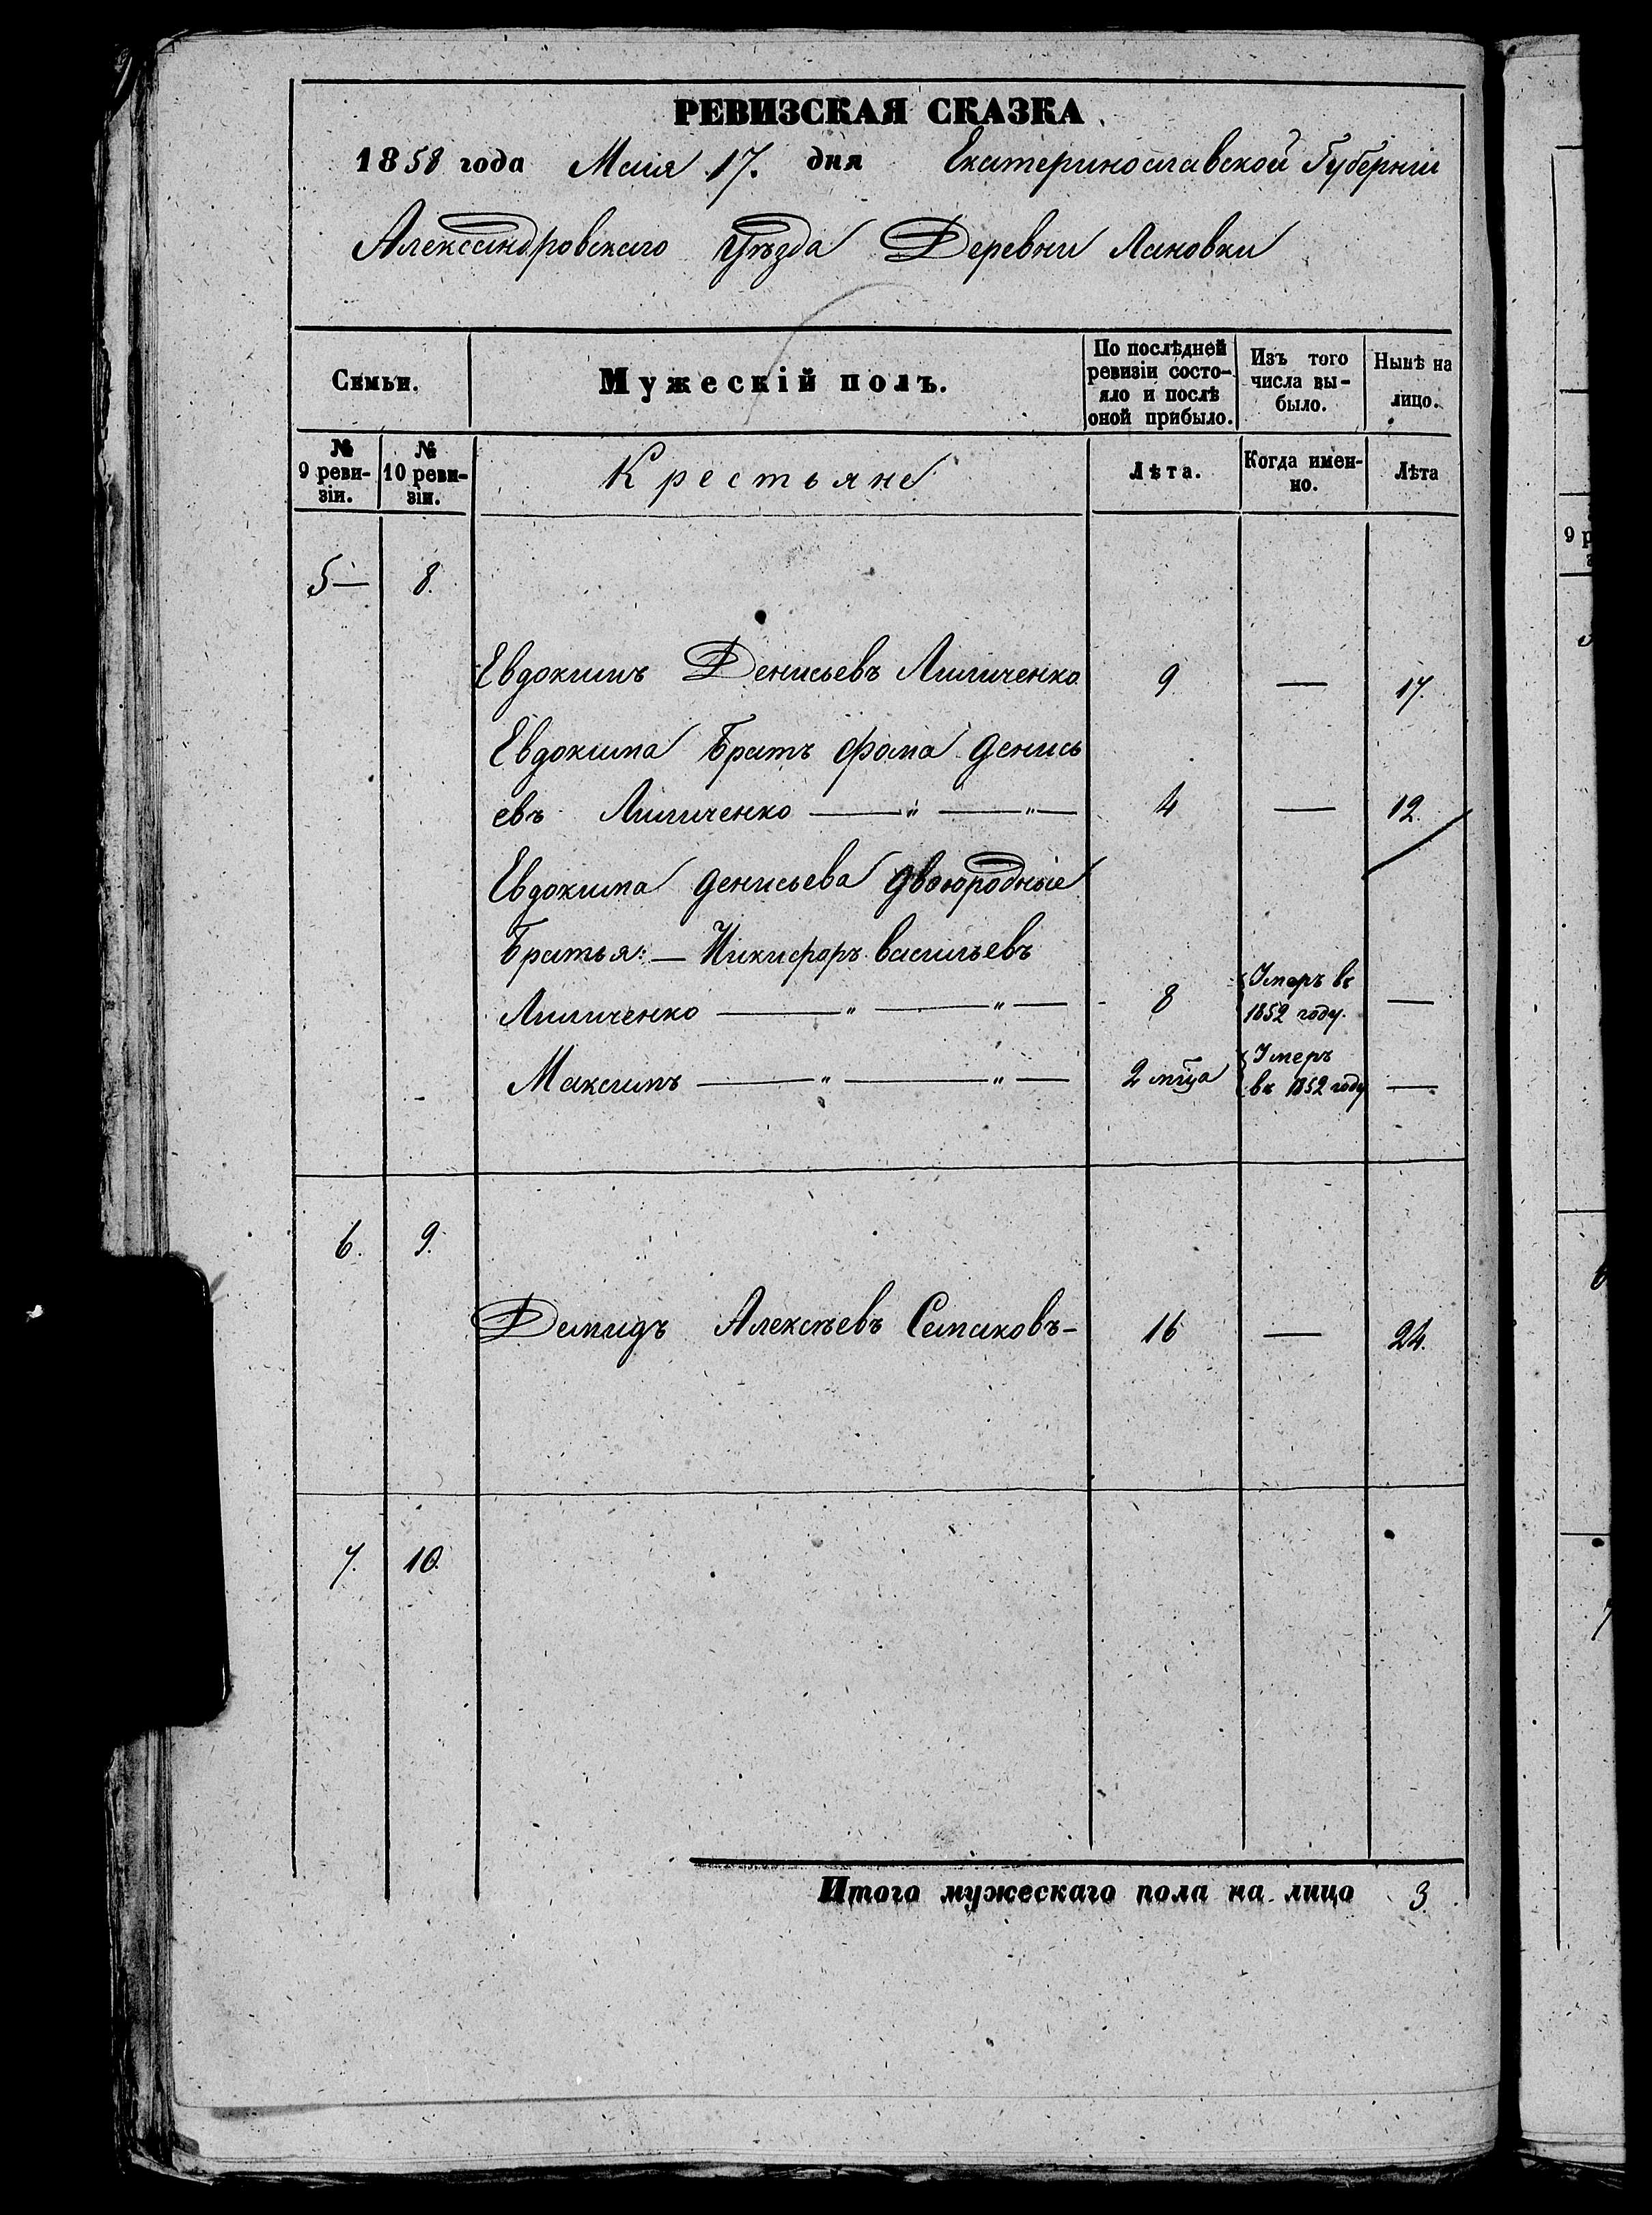 РЕВИЗСКАЯ СКАЗКА
1858 года Маія 17. дня Екатеринославской Губерніи
Александровскаго Уѣзда Деревни Лановки
Симьи.
Мужескій полъ.
По послѣдней ревизіи состо-
яло и послѣ
оной прибыло.
Изъ того
числа вы-
было.
Нынѣ на
лицо.
№
9 реви-
зіи.
№
10 реви-
зіи.
Крестьяне
Лѣта.
Когда имен-
но.
Лѣта
5 — 8.
Евдокимъ Денисьевъ Личиченко 9 — 17.
Евдокима Братъ Фома Денись
евъ Личиченко — " — " — 4 — 12.
Евдокима Денисьева двоюродные
Братья: — Никифоръ Васильевъ
Личиченко — " — " — 8 Умеръ въ
1852 году. —
Максимъ — " — " — 2 мѣца Умеръ
въ 1852 году —
6. 9.
Демидъ Алексѣевъ Семаковъ - 16 — 24.
7. 10.
Итого мужескаго пола на лицо 3.
9 р